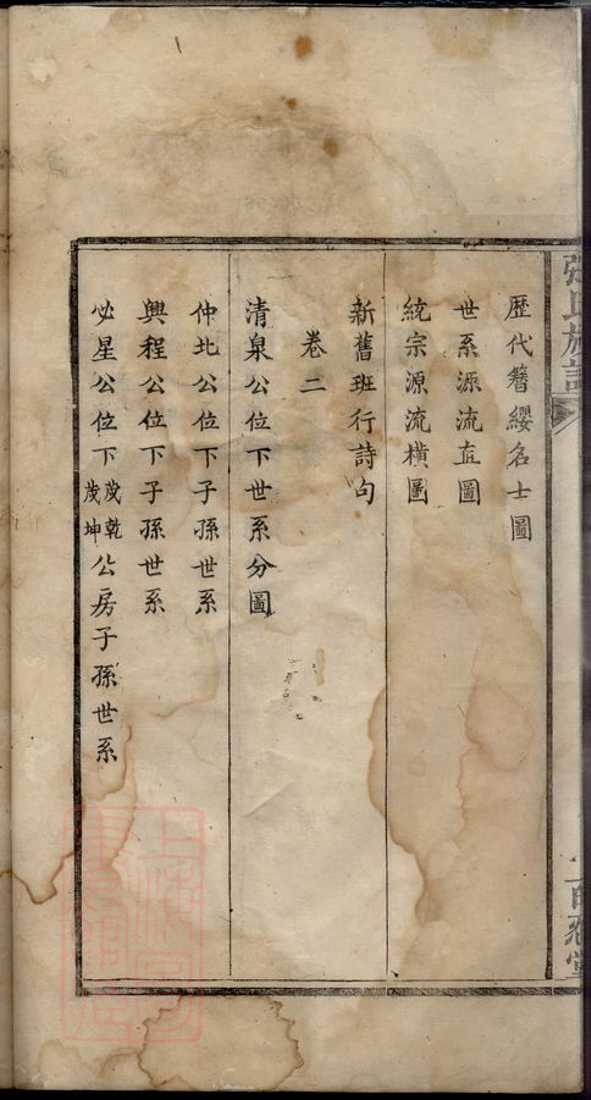 歷代簪纓名士圖
世系源流直圖
統宗源流橫圖
新舊班行詩句
卷二
清泉公位下世系分圖
仲北公位下子孫世系
興程公位下子孫世系
必星公位下茂乾茂坤公房子孫世系
張氏族譜
百忍堂